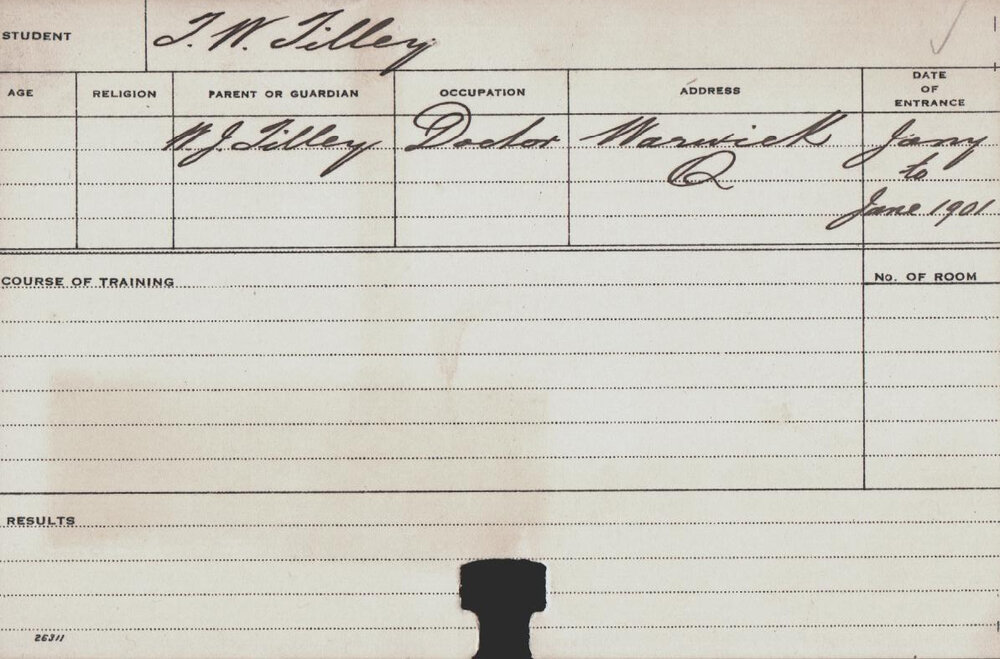 STUDENT T. W. Tilley
AGE RELIGION PARENT OR GUARDIAN OCCUPATION ADDRESS DATE OF ENTRANCE
W. J. Tilley Doctor Warwick Jany
Q to
June 1901
COURSE OF TRAINING No. OF ROOM
RESULTS
26311